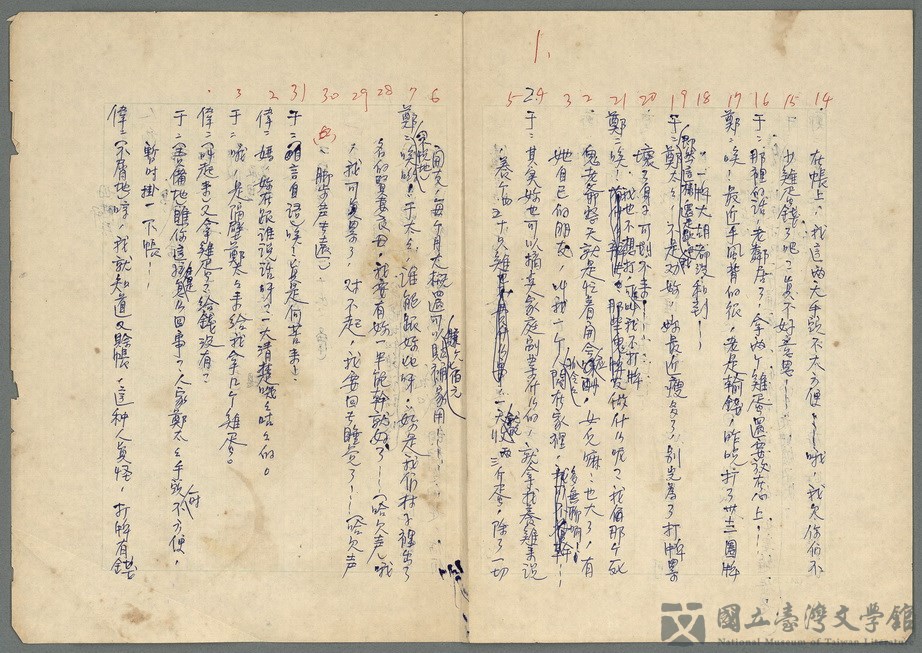 1.
14 在帳上，我這兩天手頭不太方便…哦，我欠你們不
15 少雞蛋錢了吧？真不好意思！
16 于：那裡的話，老鄰居了，拿兩个雞蛋還要放在心上！
17 鄭：唉！最近手風背的很，老是輸錢，昨晚打了廿三圈牌
18 ，一牌大胡都沒和到！
19 于：鄭太太，不是我說妳，妳最近瘦多了，別光為了打牌累
20 壞了身子可划不來！
21 鄭：唉！我也不想打，但我不打牌，那些鬼時光做什么呢？我們那个死
2 鬼老爺整天就是忙着開会應酬，女兒嘛！也大了，有
3 她自己的朋友，叫我一个人関在家裡，多無聊啊！
24 于：其余妳也可以搞其余家庭副業什么的，就拿我養雞來說
5 養个四五十只雞，一天收兩三斤蛋，除了一切
6 開支，每个月大概還可以賺个七佰元貼補家用！
7 鄭：唉喲！于太太，誰能跟妳比呀，妳是我们村子裡出了
28 名的賢妻良母，我要有妳一半能幹就好了！（哈欠声）哦
29 ，我可真累了，对不起，我要回去睡覺了！（哈欠声
30 ，脚步声去遠）
31 于：（自言自語）唉！真是何苦來！
2 偉：媽，妳在跟誰說話呀？一大清早嘰嘰咕咕的。
3 于：哦，是隔壁鄭太太來給我拿几个雞蛋。
偉：（叫起來）又拿雞蛋？給錢沒有？
于：（責備地）瞧你這孩子怎么回事？人家鄭太太手頭不方便，
暫时掛一下帳！
偉：（不屑地）哼，我就知道又賒帳，這种人真怪，打牌有錢
國立臺灣文學館
National Museum of Taiwan Literature